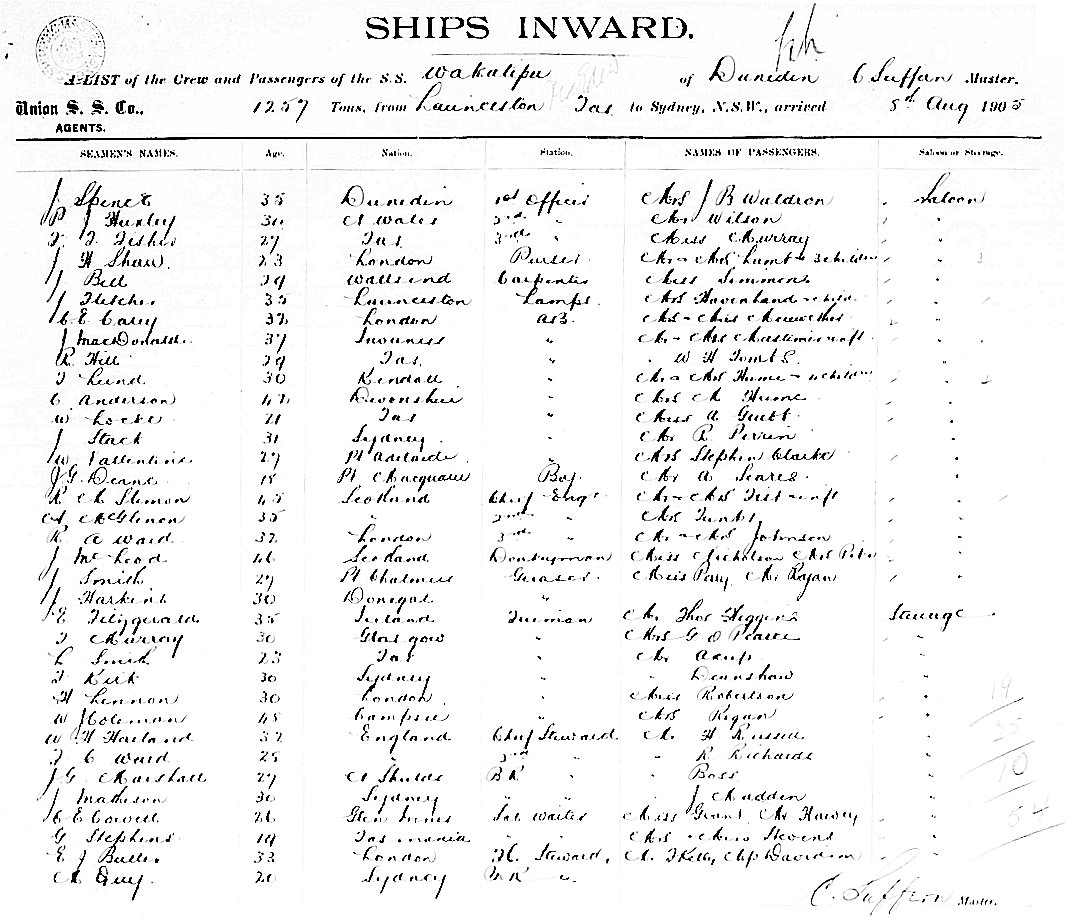 SHIPS INWARD.
A LIST of the Crew and Passengers of the S.S. Wakatipu of Dunedin C Suffern Master.
Union S. S. Co., 1257 Tons, from Launceston Tas to Sydney, N.S.W., arrived 8th Aug 1905
AGENTS.
SEAMEN'S NAMES. Age. Nation. Station. NAMES OF PASSENGERS. Saloon or Steerage.
J Spence 35 Dunedin 1st Officer Mrs J B Waldron " Saloon
P J Huxley 30 N Wales 2nd " Mr Wilson " "
27 Tas 3rd " Miss Murray " "
J H Shaw. 23 London Purser Mr - Mrs Lumb - 3 children " "
J Bell 29 Wallsend Carpenter Miss Simmons " "
J Fletcher 35 Launceston Lamps. Mrs - child " "
C E Carey 32 London AB. Mrs - Miss " "
J MacDonald. 37 Inverness " Mr - Mrs " "
R Hill 29 Tas " " W H Tombs. "
T Lund 30 Kendall " Mr - Mrs Hume - 4 children " "
C Anderson 42 Devonshire " Mrs M Hume "
W Locke 21 Tas " Miss A "
J Stack 31 Sydney " Mr R Perrin "
W Vallentine 27 Pt Adelaide " Mrs Stephen Clarke "
J G Deane 18 Pt Macquarie Boy. Mr A Scares "
R M Slimon 45 Scotland Chief Engr Mr - Mrs "
35 " 2nd " Mrs "
R A Ward 32 London 3rd " Mr - Mrs Johnson "
J McLeod 46 Scotland Donkeyman Miss Nicholson Mrs "
J Smith 29 Pt Chalmers Greaser Miss Parry, Mr Ryan "
J Harkins 30 Donegal "
E Fitzgerald 35 Ireland Fireman Mr Thos Higgins Steerage
T Murray 30 Glasgow " Mrs G O Pearce "
L Smith 23 Tas " Mr "
T Kirk 30 Sydney " " Dennshaw "
H Lennon 30 London " Miss Robertson "
W J Coleman 45 Campsie " Mrs Regan "
W H Harland 32 England Chief Steward Mr H Russell "
T C Ward 25 " 2nd " " R Richards "
J G Marshall 27 N Shields BR " " Boss "
J Matheson 30 Sydney " " " J Madden "
C E Cowell 26 Glen Innes Sal Waiter Miss Grant, Mr Harvey "
G Stephens 19 Tasmania " " Mrs - Miss Stevens "
E J Butler 33 London FC Steward, Mr T Kelly, "
M Guy. 20 Sydney "
19
25
10
54
C. Suffern Master.